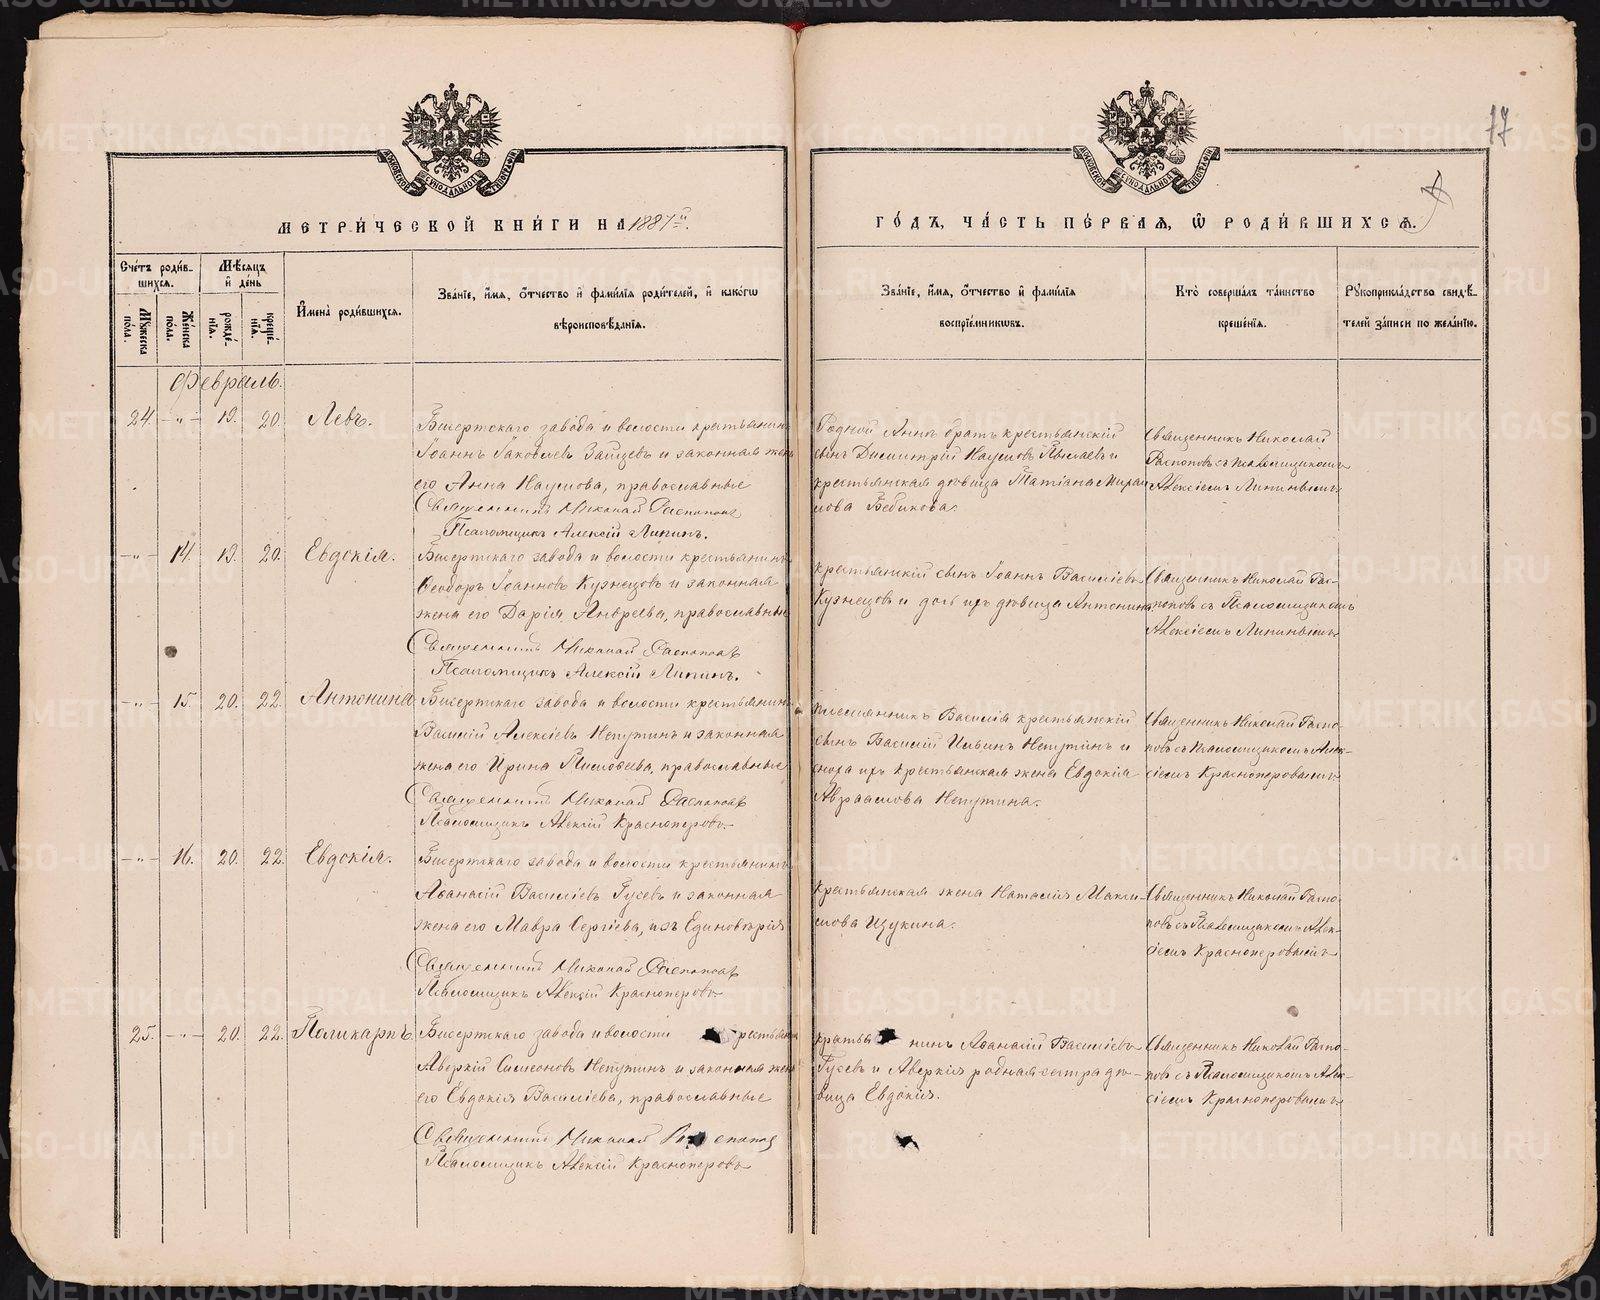 17
МОСКОВСКОЙ СѴНОДАЛЬНОЙ ТИПОГРАФІИ
МОСКОВСКОЙ СѴНОДАЛЬНОЙ ТИПОГРАФІИ
МЕТРИ́ЧЕСКОЙ КНИ́ГИ НА 1887й
ГО́ДЪ, ЧА́СТЬ ПЕ́РВАЯ, Ѽ РОДИ́ВШИХСЯ.
Сче́тъ роди́в-
шихся.
Мꙋжеска по́ла.
Же́нска по́ла.
Мѣ́сяцъ
и҆ де́нь
рожде́-
нїя.
креще́-
нїя.
И҆мена̀ роди́вшихся.
Зва́нїе, и҆́мя, ѻ҆́тчество и҆ фами́лїя роди́телей, и҆ како́гѡ
вѣроисповѣ́данїя.
Зва́нїе, и҆́мя, ѻ҆́тчество и҆ фами́лїя
воспрїе́мникѡвъ.
Кто̀ соверша́лъ та́инство
креще́нїя.
Рꙋкоприкла́дство свидѣ́-
телей за́писи по жела́нїю.
Февраль.
24. - „ - 19. 20. Левъ.
Бисертскаго завода и волости крестьянинъ
Іоаннъ Іаковлевъ Зайцевъ и законная жена
его Анна Наумова, православные
Священникъ Николай Распоповъ
Псаломщикъ Алексій Липинъ.
Родной Анны братъ крестьянскій
сынъ Димитрій Наумовъ и
крестьянская дѣвица Татіана
Бабикова.
Священникъ Николай
Распоповъ съ псаломщикомъ
Алексіемъ Липинымъ
- „ - 14. 19. 20. Евдокія.
Бисертскаго завода и волости крестьянинъ
Ѳеодоръ Іоанновъ Кузнецовъ и законная
жена его Дарія Андреева, православные
Священникъ Николай Распоповъ
Псаломщикъ Алексій Липинъ.
крестьянскій сынъ Іоаннъ Василіевъ
Кузнецовъ и дочь ихъ дѣвица Антонина
Священникъ Николай Рас-
поповъ съ Псаломщикомъ
Алексіемъ Липинымъ
- „ - 15. 20. 22. Антонина
Бисертскаго завода и волости крестьянинъ
Василій Алексіевъ Непутинъ и законная
жена его Ирина Тимоѳеева, православные
Священникъ Николай Распоповъ
Псаломщикъ Алексій Красноперовъ
племянникъ Василія крестьянскій
сынъ Василій Ильинъ Непутинъ и
сноха ихъ крестьянская жена Евдокія
Авраамова Непутина.
Священникъ Николай Распо-
повъ съ Псаломщикомъ Алек-
сіемъ Красноперовымъ
- „ - 16. 20. 22. Евдокія.
Бисертскаго завода и волости крестьянинъ
Аѳанасій Василіевъ Гусевъ и законная
жена его Мавра Сергіева, изъ Единовѣрія
Священникъ Николай Распоповъ
Псаломщикъ Алексій Красноперовъ
крестьянская жена Наталія Макси-
мова Щукина.
Священникъ Николай Распо-
повъ съ Псаломщикомъ Алек-
сіемъ Красноперовымъ
25. - „ - 20. 22. Поликарпъ.
Бисертскаго завода и волости крестьянинъ
Аверкій Симеоновъ Непутинъ и законная жена
его Евдокія Василіева, православные
Священникъ Николай Распоповъ
Псаломщикъ Алексій Красноперовъ
крестьянинъ Аѳанасій Василіевъ
Гусевъ и Аверкія родная сестра дѣ-
вица Евдокія.
Священникъ Николай Распо-
повъ съ Псаломщикомъ Алек-
сіемъ Красноперовымъ
METRIKI.GASO-URAL.RU